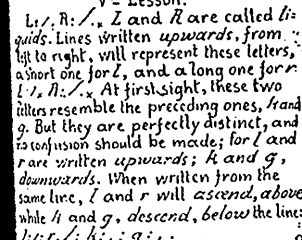 Lesson.
L:/. R:/. L and R are called li-
quids. Lines written upwards, from
left to right, will represent these letters,
a short one for l, and a long one for r.
L:/. R:/. At first sight, these two
letters resemble the preceding ones, k and
g. But they are perfectly distinct, and
no confusion should be made; for l and
r are written upwards; k and g,
downwards. When written from the
same line, l and r will ascend, above
while k and g, descend, below the line: